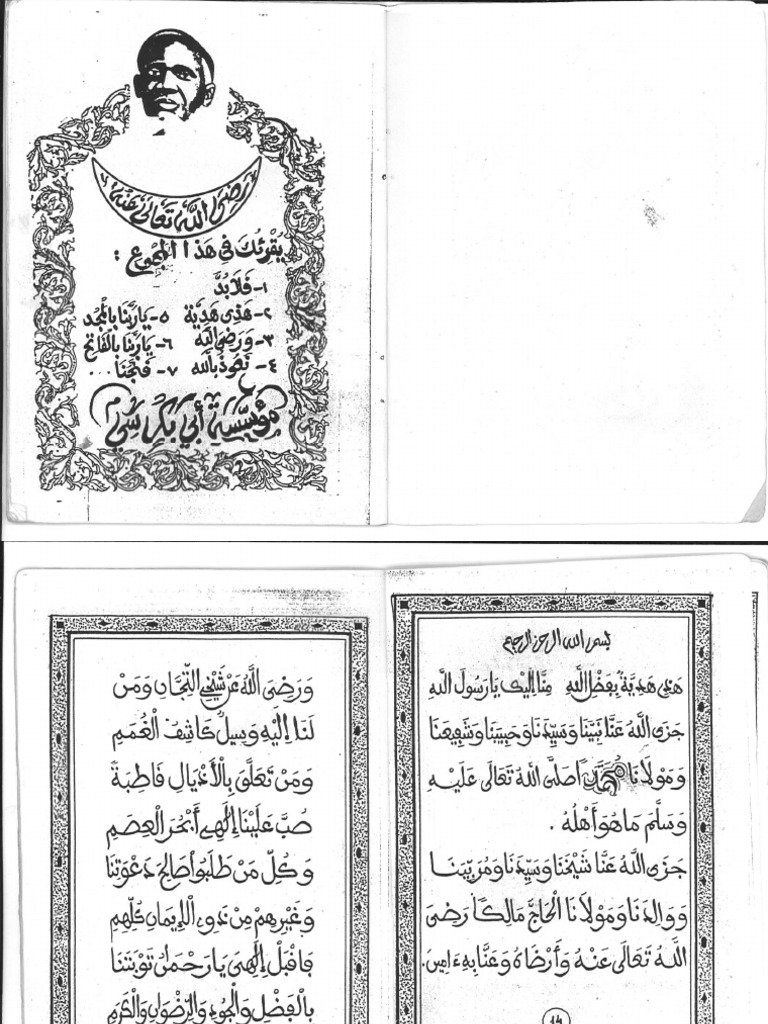 رضي الله تعالى عنه
يقرئك في هذا المجموع :
١- فَلَا بُدَّ
٢- هَذِي هَدِيَّة ٥- يَا رَبَّنَا بِالْمُمِدّ
٣- وَرَضِيَ اللّه ٦- يَا رَبَّنَا بِالْفَاتِح
٤- نَعُوذُ بِاللّه ٧- فَنَجِّنَا ...
مُؤَسَّسَة أَبِي بَكْر سِي
بسم الله الرحمن الرحيم
هَذِي هَدِيَّةٌ بِفَضْلِ اللَّهِ مِنَّا إِلَيْكَ يَا رَسُولَ اللَّهِ
جَزَى اللَّهُ عَنَّا نَبِيَّنَا وَسَيِّدَنَا وَحَبِيبَنَا وَشَفِيعَنَا
وَمَوْلَانَا مُحَمَّدًا صَلَّى اللَّهُ تَعَالَى عَلَيْهِ
وَسَلَّمَ مَا هُوَ أَهْلُهُ .
جَزَى اللَّهُ عَنَّا شَيْخَنَا وَسَيِّدَنَا وَمُرَبِّيَنَا
وَوَالِدَنَا وَمَوْلَانَا الْحَاجَّ مَالِكًا رَضِيَ
اللَّهُ تَعَالَى عَنْهُ وَأَرْضَاهُ وَعَنَّا بِهِ ءَامِينَ.
وَرَضِيَ اللَّهُ عَنْ شَيْخِي التِّجَانِ وَمَنْ
لَنَا إِلَيْهِ وَسِيلٌ كَاشِفُ الْغُمَمِ
وَمَنْ تَعَلَّقَ بِالْأَذْيَالِ قَاطِبَةً
صُبَّ عَلَيْنَا إِلَهِي أَبْحُرَ الْعِصَمِ
وَكُلِّ مَنْ طَلَبُوا صَالِحَ دَعْوَتِنَا
وَغَيْرِهِمْ مِنْ ذَوِي الْإِيمَانِ كُلِّهِمِ
فَاقْبَلْ إِلَهِيَ يَا رَحْمَنُ تَوْبَتَنَا
بِالْفَضْلِ وَالْجُودِ وَالرِّضْوَانِ وَالْكَرَمِ